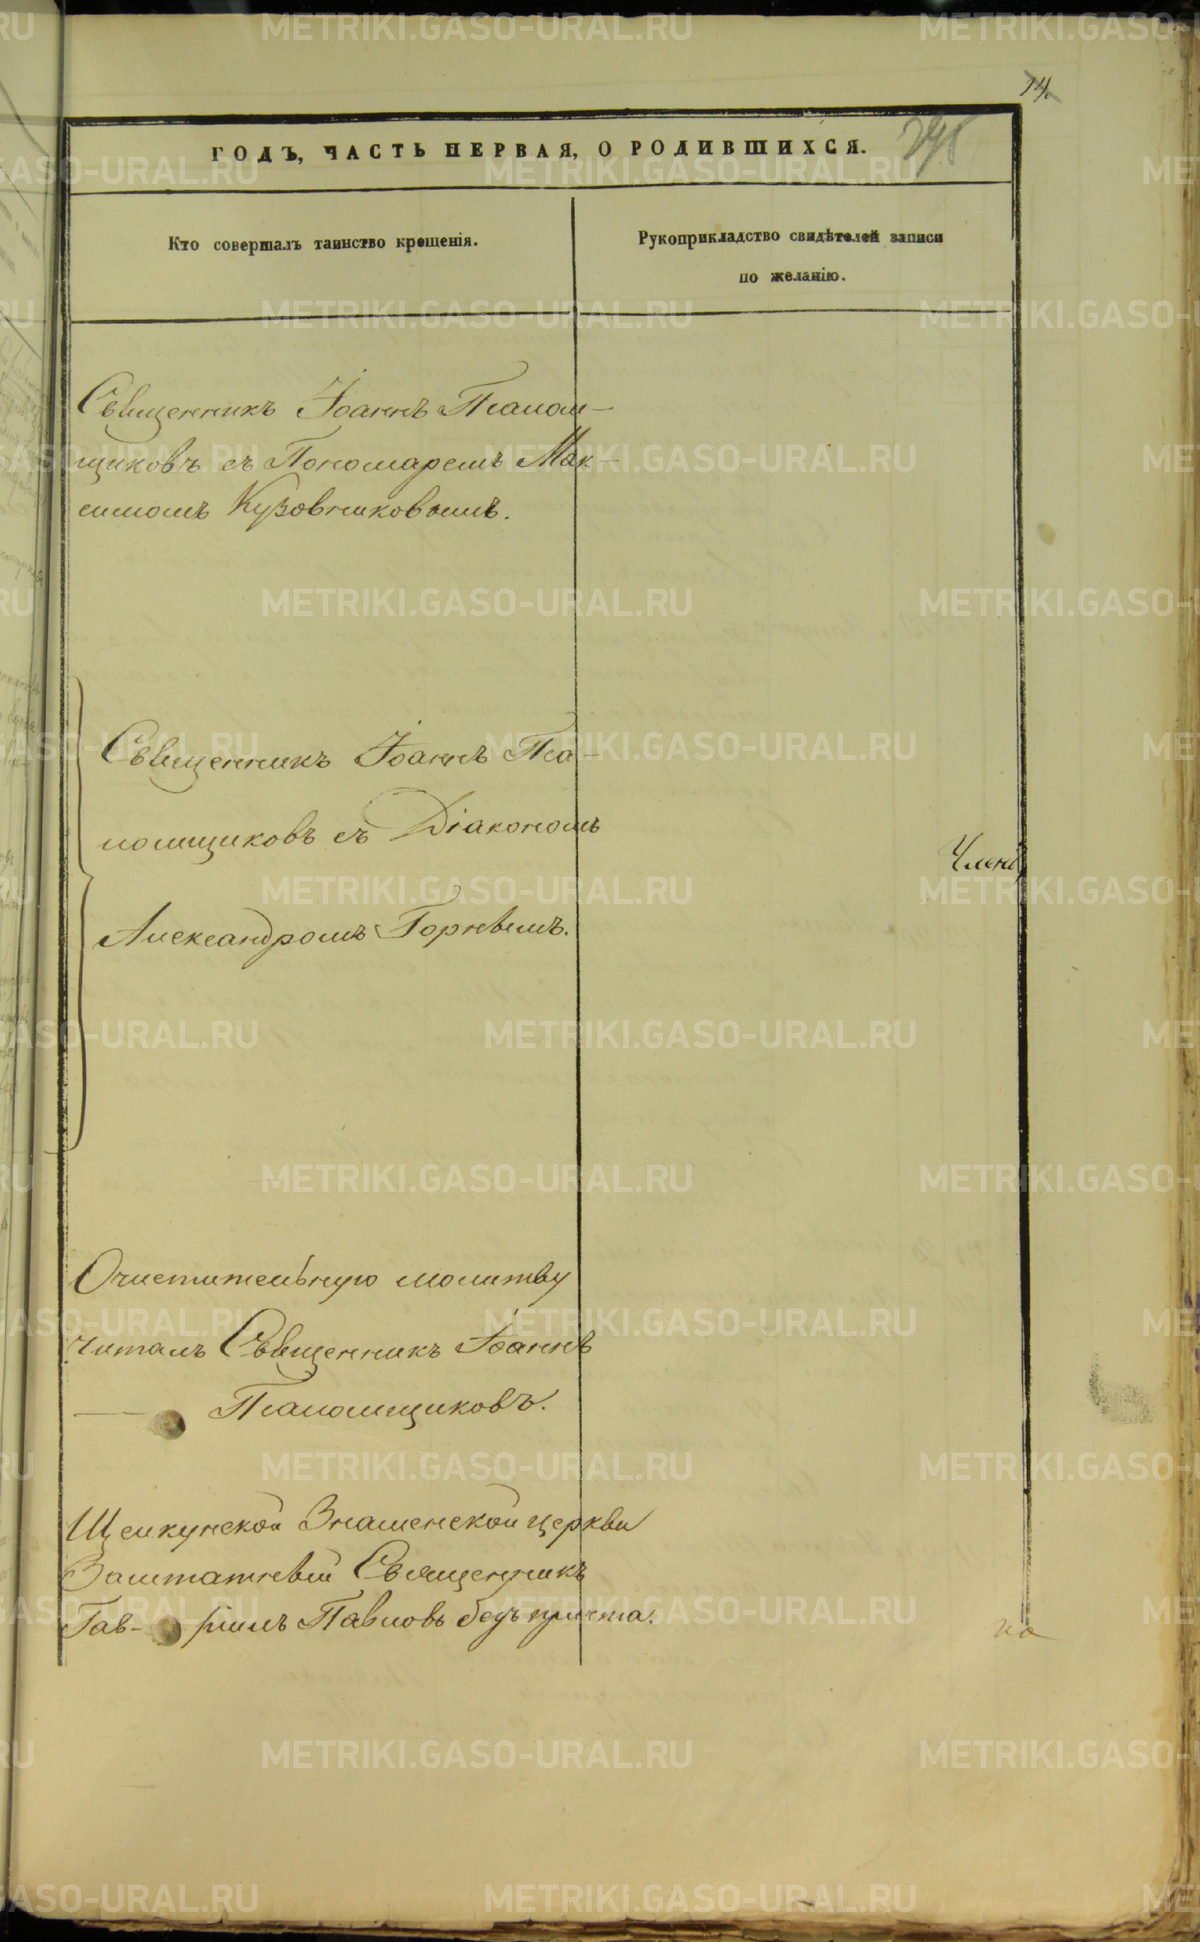 14.
ГОДЪ, ЧАСТЬ ПЕРВАЯ, О РОДИВШИХСЯ.
Кто совершалъ таинство крещенія.
Рукоприкладство свидѣтелей записи
по желанію.
Священникъ Іоаннъ Псалом-
щиковъ съ Пономаремъ Мак-
симомъ Кузовниковымъ.
Священникъ Іоаннъ Пса-
ломщиковъ съ Діакономъ
Александромъ Горнымъ.
Членъ
Очистительную молитву
читалъ Священникъ Іоаннъ
Псаломщиковъ.
Щелкунской Знаменской церкви
Заштатный Священникъ
Гав- ріилъ Павловъ безъ причта.
METRIKI.GASO-URAL.RU